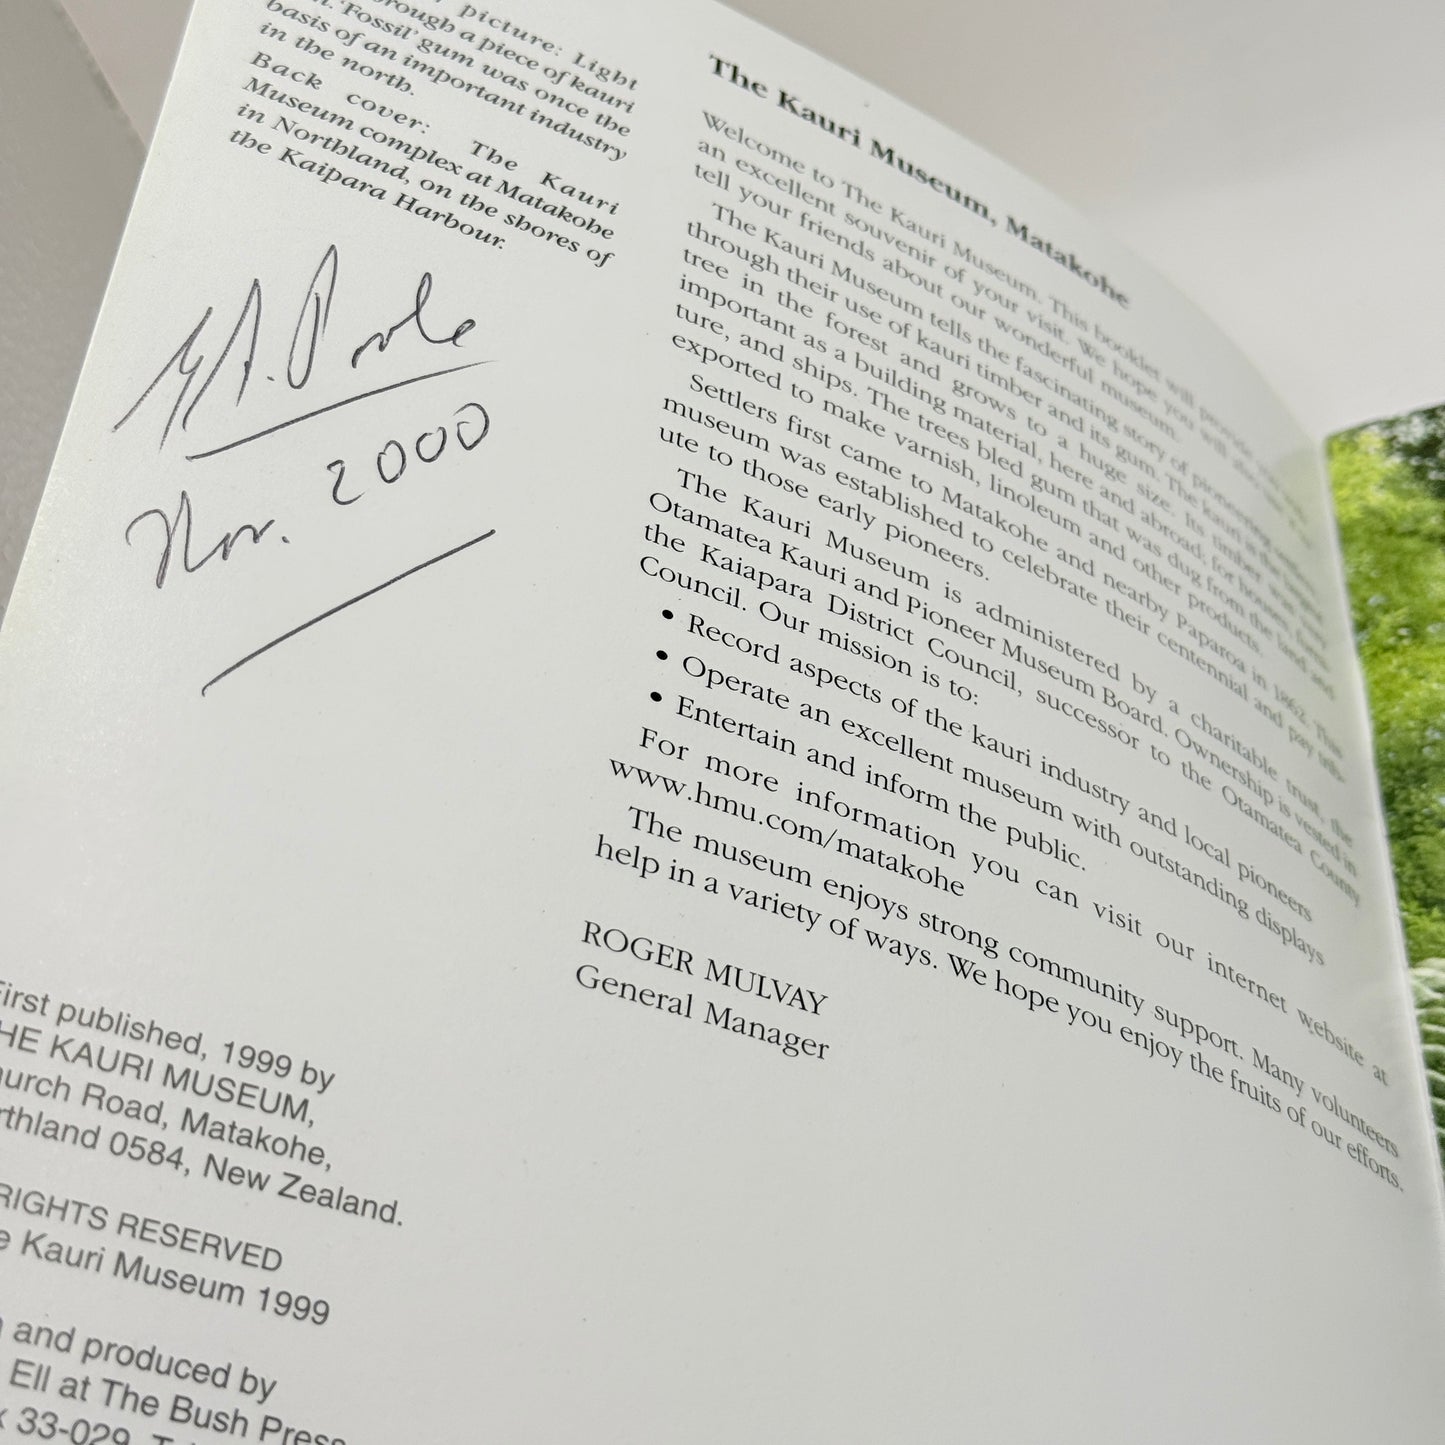 picture: Light
through a piece of kauri
'Fossil' gum was once the
basis of an important industry
in the north.
Back cover: The Kauri
Museum complex at Matakohe
in Northland, on the shores of
the Kaipara Harbour.
A. Poole
Nov. 2000
First published, 1999 by
THE KAURI MUSEUM,
Church Road, Matakohe,
Northland 0584, New Zealand.
RIGHTS RESERVED
Kauri Museum 1999
and produced by
Ell at The Bush Press
33-029
The Kauri Museum, Matakohe
Welcome to The Kauri Museum. This booklet will provide
an excellent souvenir of your visit. We hope you will also
tell your friends about our wonderful museum.
The Kauri Museum tells the fascinating story of pioneering
through their use of kauri timber and its gum. The kauri is the largest
tree in the forest and grows to a huge size. Its timber was very
important as a building material, here and abroad; for houses, furni-
ture, and ships. The trees bled gum that was dug from the land and
exported to make varnish, linoleum and other products.
Settlers first came to Matakohe and nearby Paparoa in 1862. This
museum was established to celebrate their centennial and pay trib-
ute to those early pioneers.
The Kauri Museum is administered by a charitable trust, the
Otamatea Kauri and Pioneer Museum Board. Ownership is vested in
the Kaiapara District Council, successor to the Otamatea County
Council. Our mission is to:
• Record aspects of the kauri industry and local pioneers
• Operate an excellent museum with outstanding displays
• Entertain and inform the public.
For more information you can visit our internet website at
www.hmu.com/matakohe
The museum enjoys strong community support. Many volunteers
help in a variety of ways. We hope you enjoy the fruits of our efforts.
ROGER MULVAY
General Manager